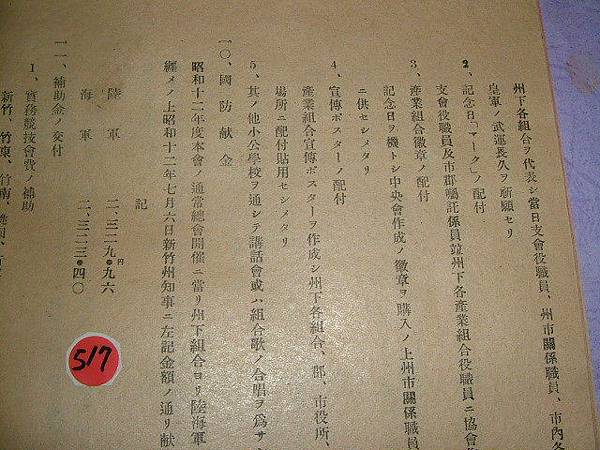 州下各組合ヲ代表シ當日支會役職員、州市關係職員、市内各
皇軍ノ武運長久ヲ祈願セリ
2、記念日「マーク」ノ配付
支會役職員及市郡囑託係員竝州下各產業組合役職員ニ協會
3、產業組合徽章ノ配付
記念日ヲ機トシ中央會作成ノ徽章ヲ購入ノ上州市關係職員
ニ供セシメタリ
4、宣傳ポスターノ配付
產業組合宣傳ポスターヲ作成シ州下各組合、郡、市役所、
場所ニ配付貼用セシメタリ
5、其ノ他小公學校ヲ通シテ講話會或ハ組合歌ノ合唱ヲ爲サ
一〇、國防献金
昭和十二年度本會ノ通常總會開催ニ當リ州下組合ヨリ陸海軍
纒メノ上昭和十二年七月六日新竹州知事ニ左記金額ノ通リ献
記
陸軍 二、三二九円・九六
海軍 二、三二三・四〇
一一、補助金ノ交付
1、實務競技會費ノ補助
新竹、竹東、竹南、
517